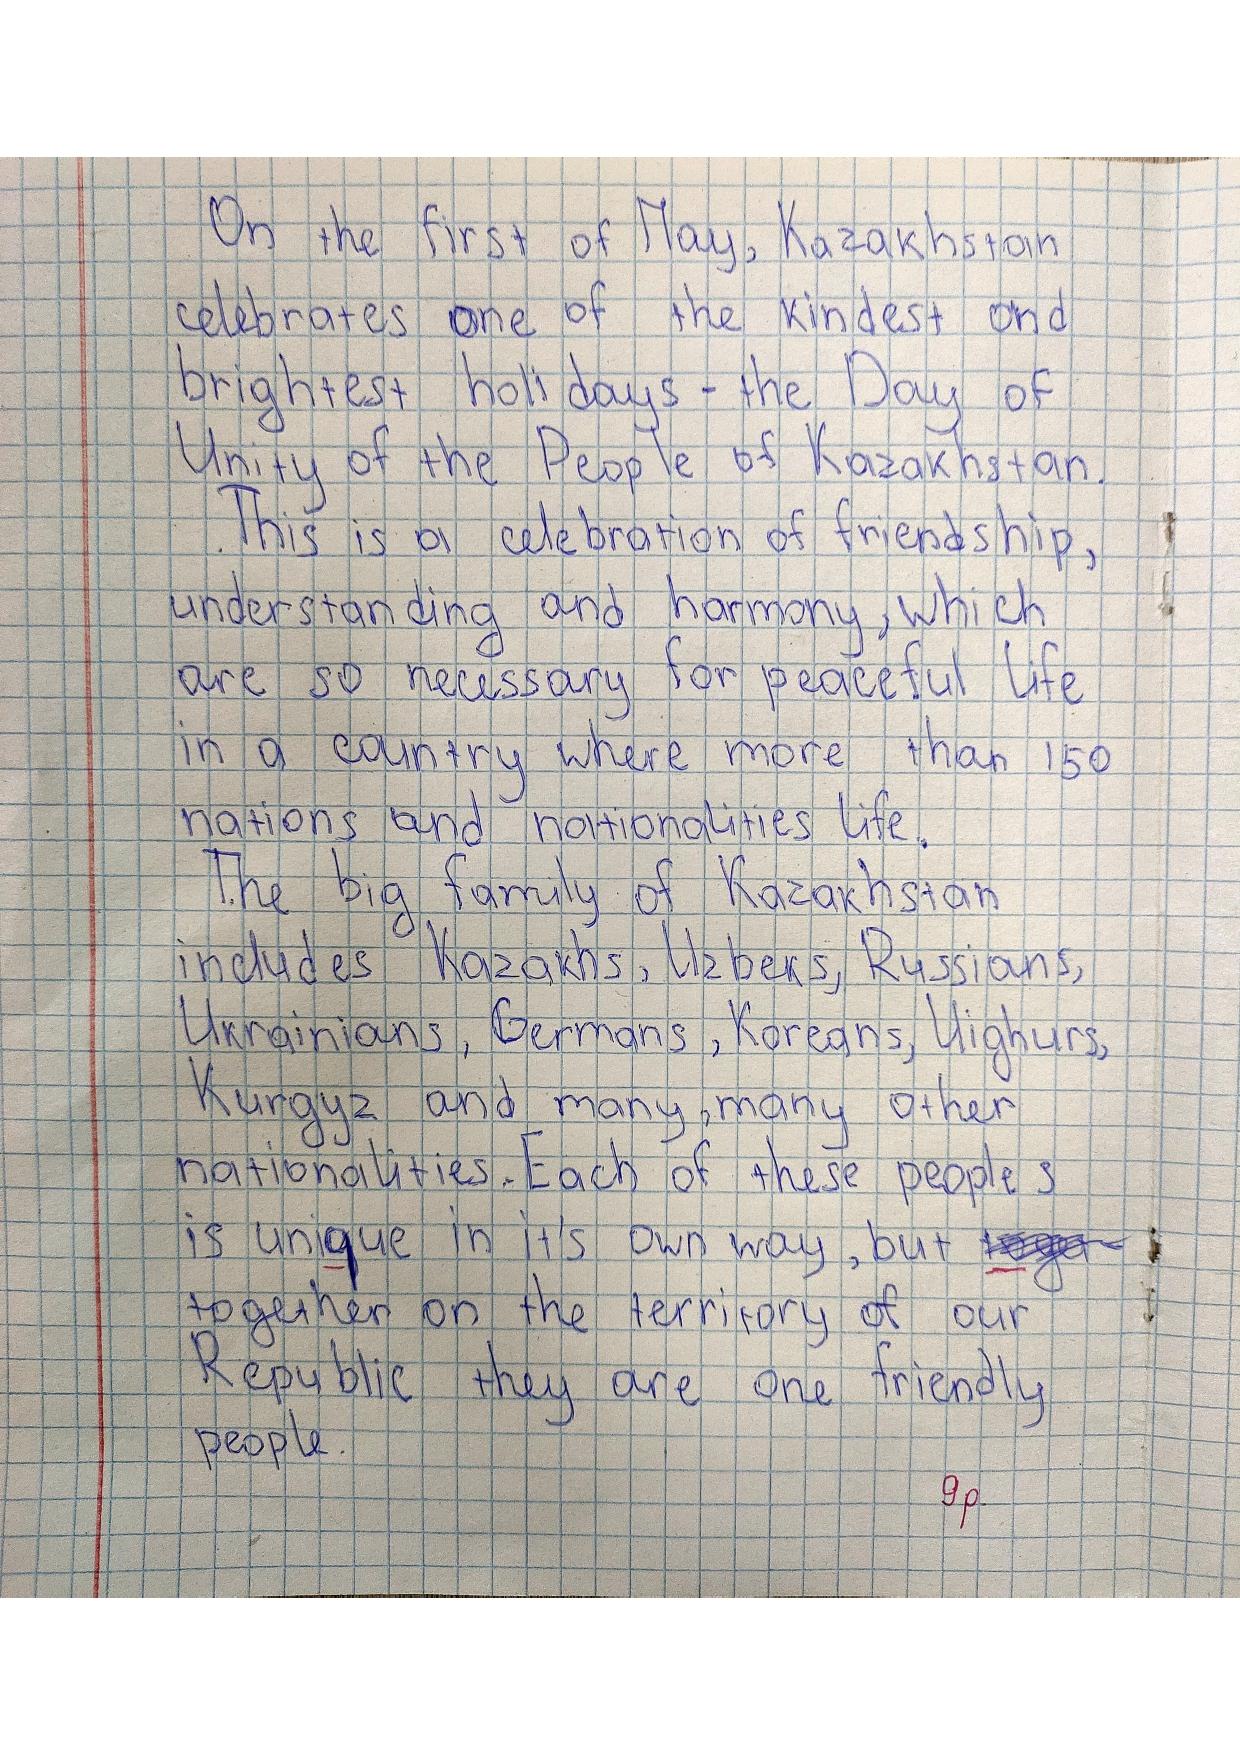 On the first of May, Kazakhstan
celebrates one of the kindest and
brightest holidays - the Day of
Unity of the People of Kazakhstan.
This is a celebration of friendship,
understanding and harmony, which
are so necessary for peaceful life
in a country where more than 150
nations and nationalities life.
The big family of Kazakhstan
includes Kazakhs, Uzbeks, Russians,
Ukrainians, Germans, Koreans, Uighurs,
Kurgyz and many, many other
nationalities. Each of these peoples
is unique in it's own way, but
together on the territory of our
Republic they are one friendly
people.
9p.